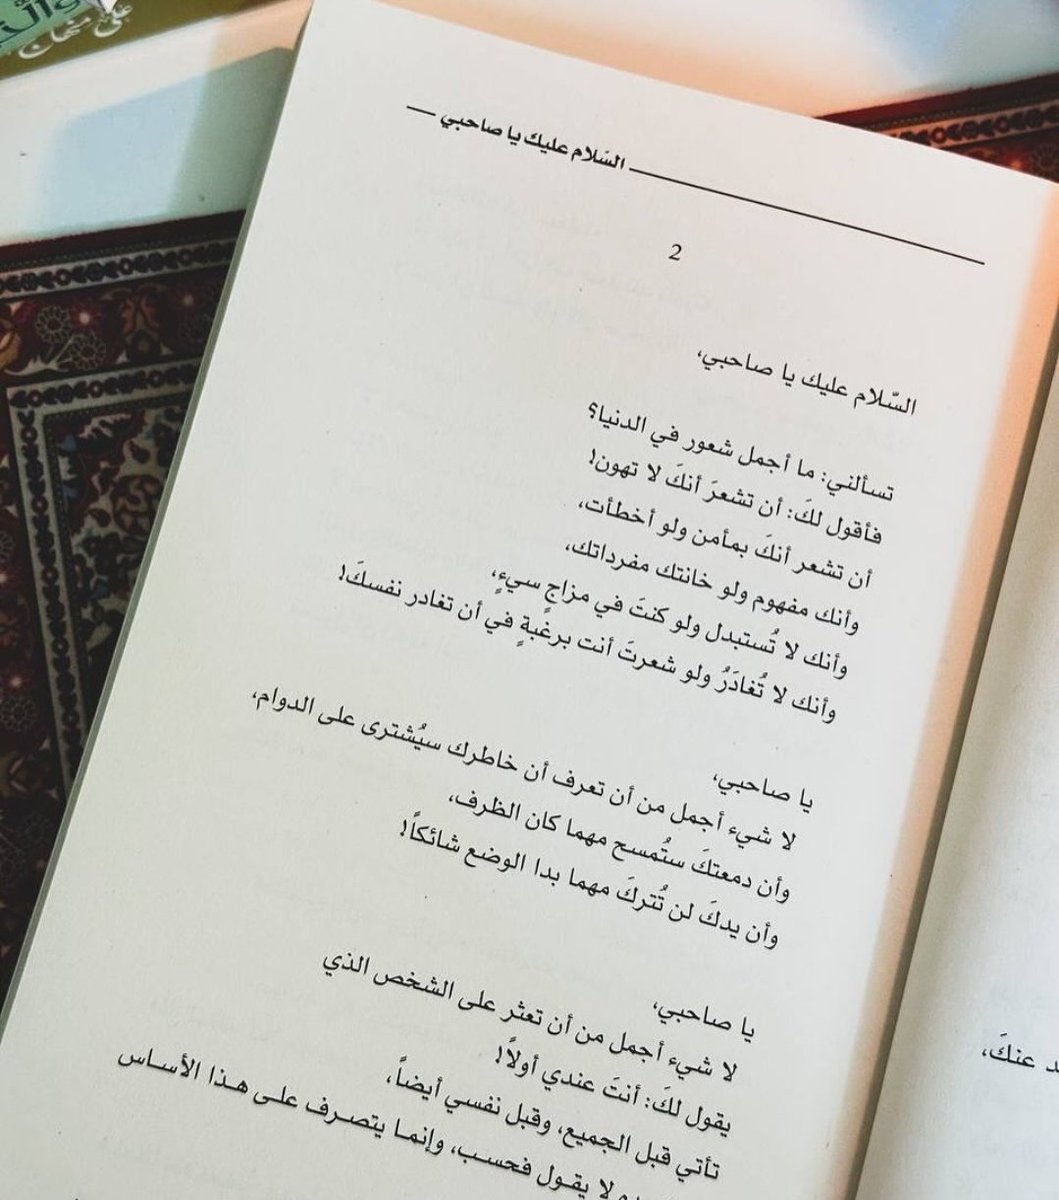 على منهاج
السّلام عليك يا صاحبي
2
السّلام عليك يا صاحبي،
تسألني: ما أجمل شعور في الدنيا؟
فأقول لكَ: أن تشعرَ أنكَ لا تهون!
أن تشعر أنكَ بمأمن ولو أخطأت،
وأنك مفهوم ولو خانتك مفرداتك،
وأنك لا تُستبدل ولو كنتَ في مزاجٍ سيءٍ،
وأنك لا تُغادَرُ ولو شعرتَ أنت برغبةٍ في أن تغادر نفسكَ!
يا صاحبي،
لا شيء أجمل من أن تعرف أن خاطرك سيُشترى على الدوام،
وأن دمعتكَ ستُمسح مهما كان الظرف،
وأن يدكَ لن تُتركَ مهما بدا الوضع شائكاً!
يا صاحبي،
لا شيء أجمل من أن تعثر على الشخص الذي
يقول لكَ: أنتَ عندي أولاً!
تأتي قبل الجميع، وقبل نفسي أيضاً،
لا يقول فحسب، وإنما يتصرف على هذا الأساس
عنكَ،